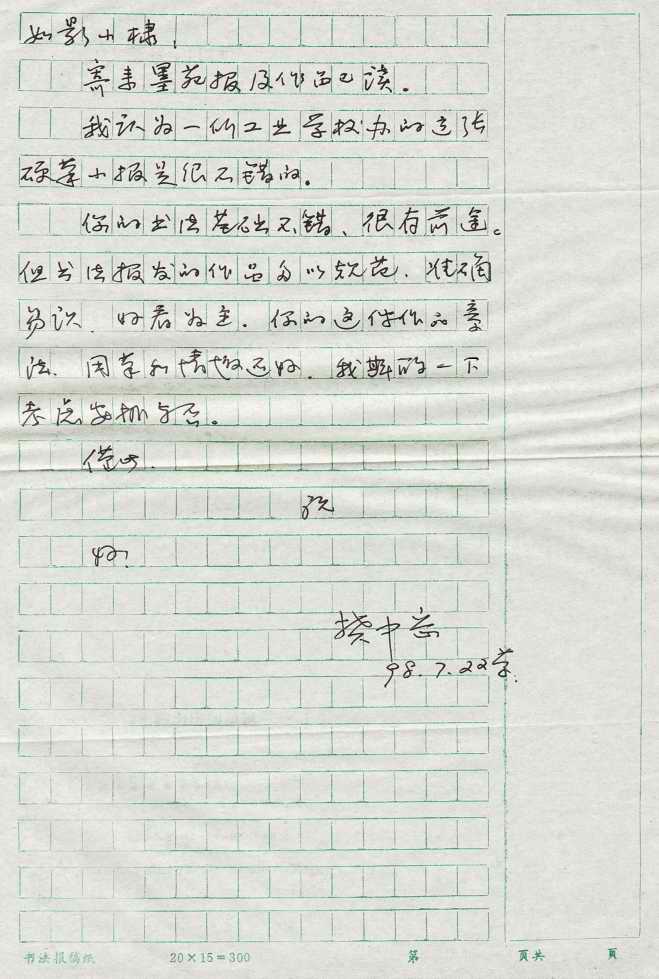 如影小棣,
寄来墨苑报及作品已读。
我认为一所工业学校办的这张
硬笔小报是很不错的。
你的书法基础不错、很有前途。
但书法报发的作品多以规范、准确
易识、好看为主. 你的这件作品章
法、用笔和情趣还好. 我斟酌一下
考虑安排与否。
借此.
祝
好!
98.7.22草.
书法报稿纸 20×15=300 第 页共 页